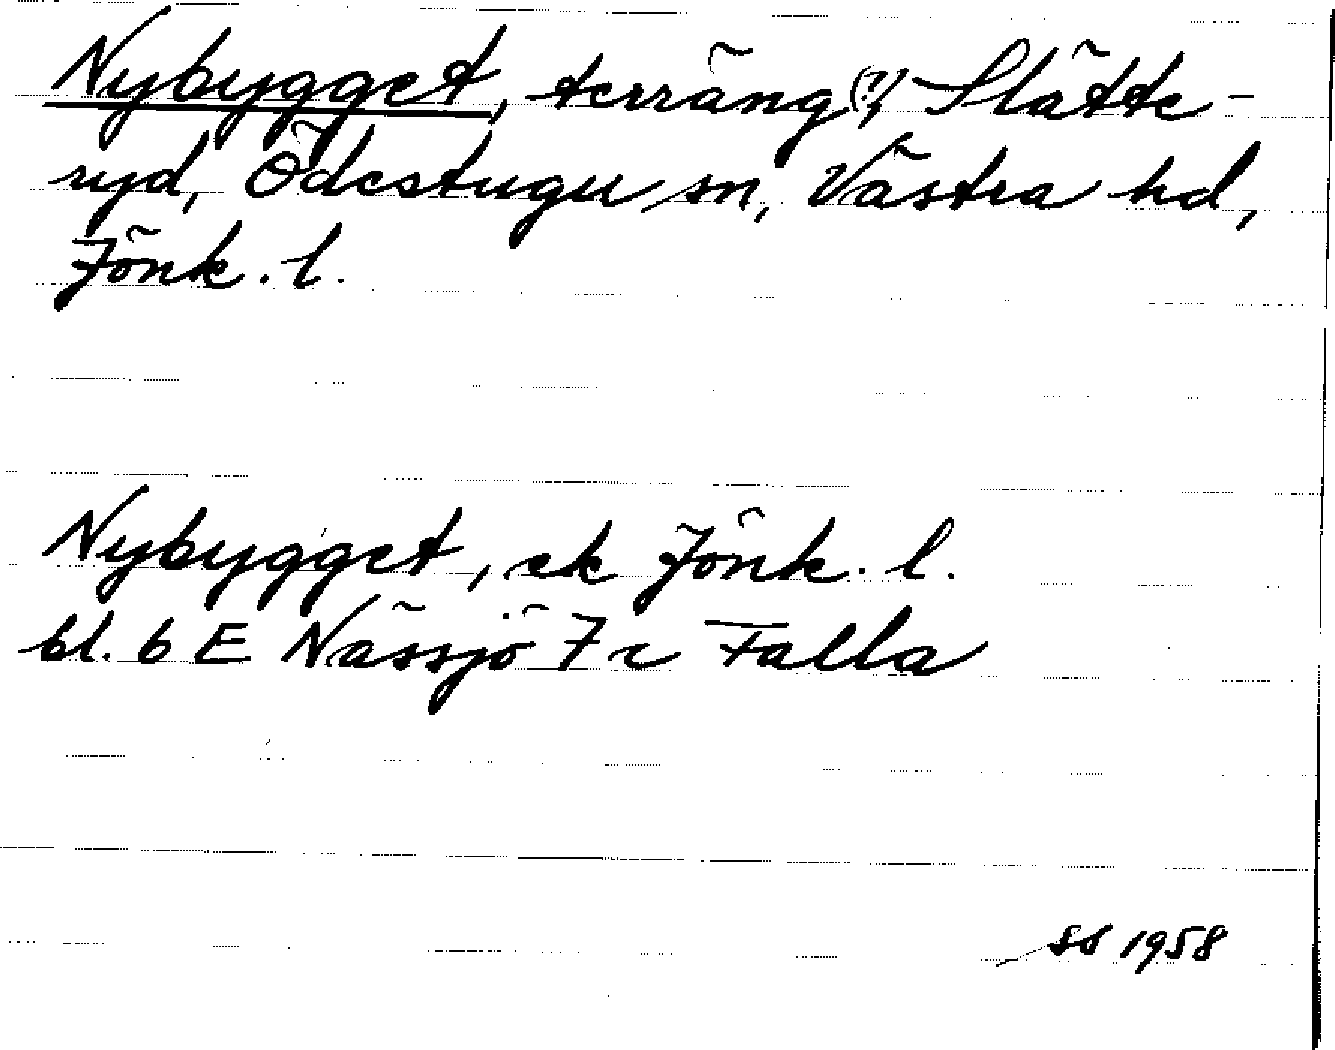 Nybygget, terräng(?) Slätte-
ryd, Ödestugu sn, Västra hd,
Jönk. l.
Nybygget, ek Jönk. l.
bl. 6 E Nässjö 7 c Falla
SS 1958